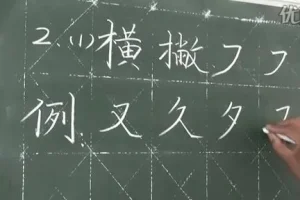 2.(1)横撇フフ
例.又久夕フ
优